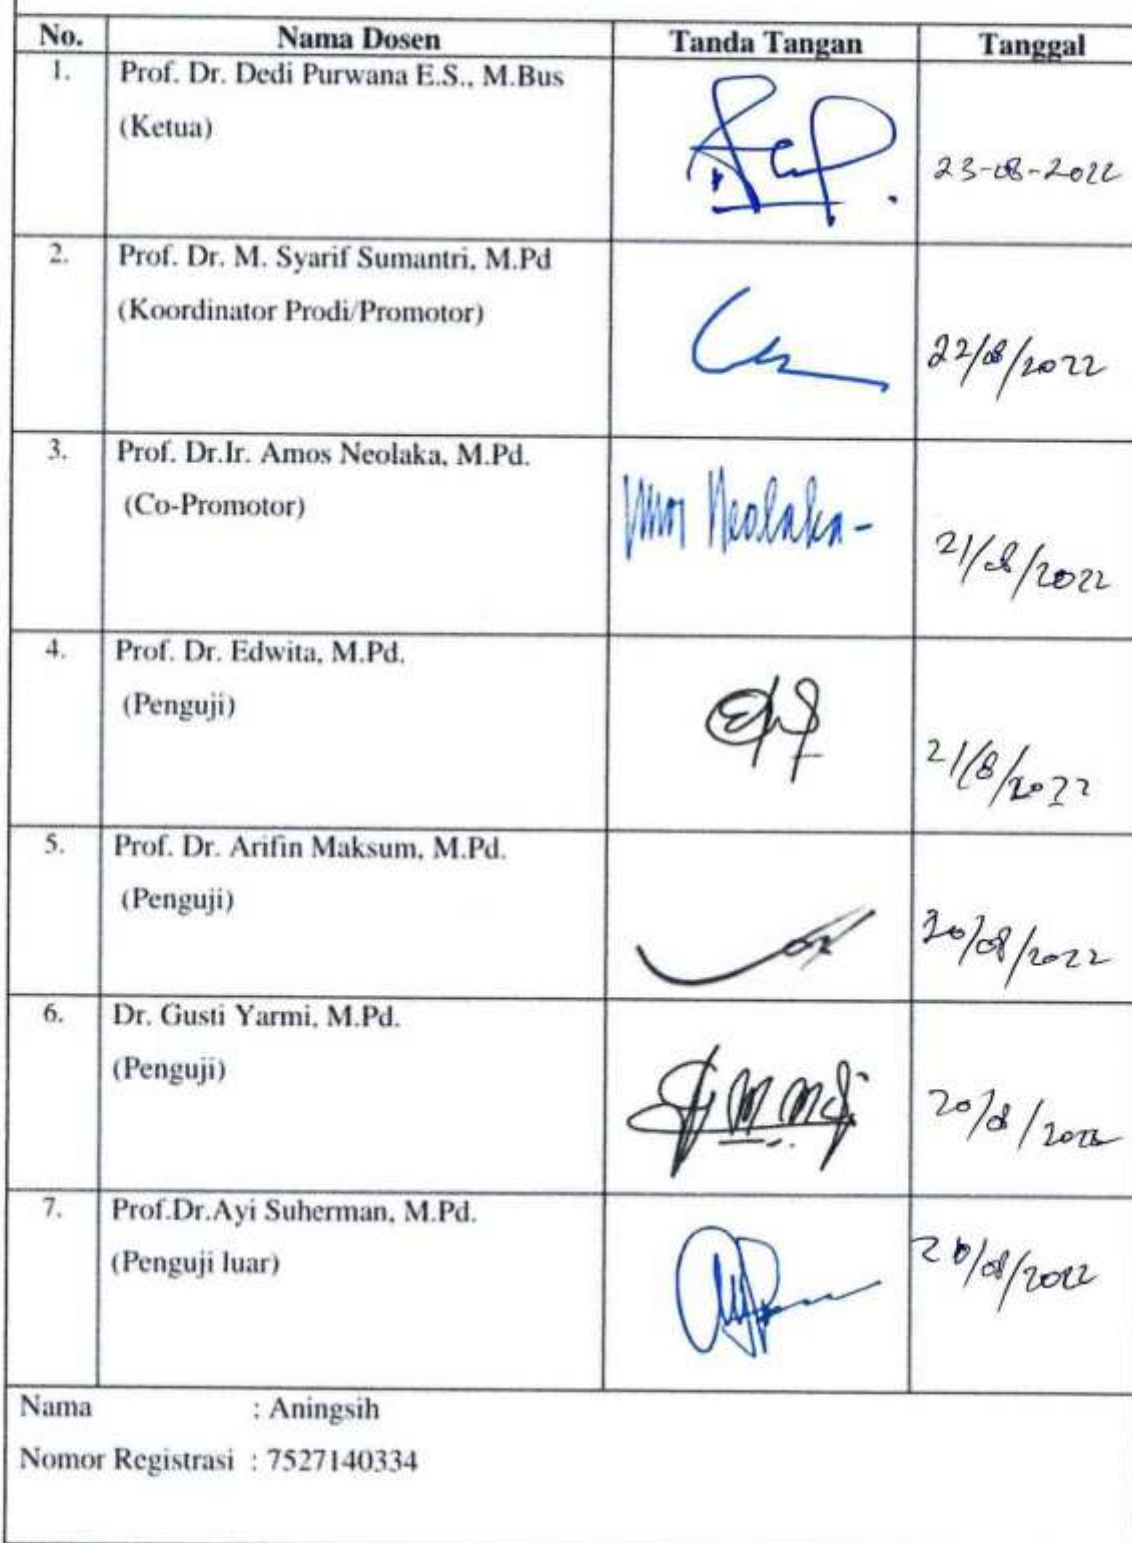 No. Nama Dosen Tanda Tangan Tanggal
1. Prof. Dr. Dedi Purwana E.S., M.Bus
(Ketua)
23-08-2022
2. Prof. Dr. M. Syarif Sumantri, M.Pd
(Koordinator Prodi/Promotor)
22/08/2022
3. Prof. Dr.Ir. Amos Neolaka, M.Pd.
(Co-Promotor)
Amos Neolaka-
21/08/2022
4. Prof. Dr. Edwita, M.Pd.
(Penguji)
21/8/2022
5. Prof. Dr. Arifin Maksum, M.Pd.
(Penguji)
20/08/2022
6. Dr. Gusti Yarmi, M.Pd.
(Penguji)
20/8/2022
7. Prof.Dr.Ayi Suherman, M.Pd.
(Penguji luar)
20/08/2022
Nama : Aningsih
Nomor Registrasi : 7527140334